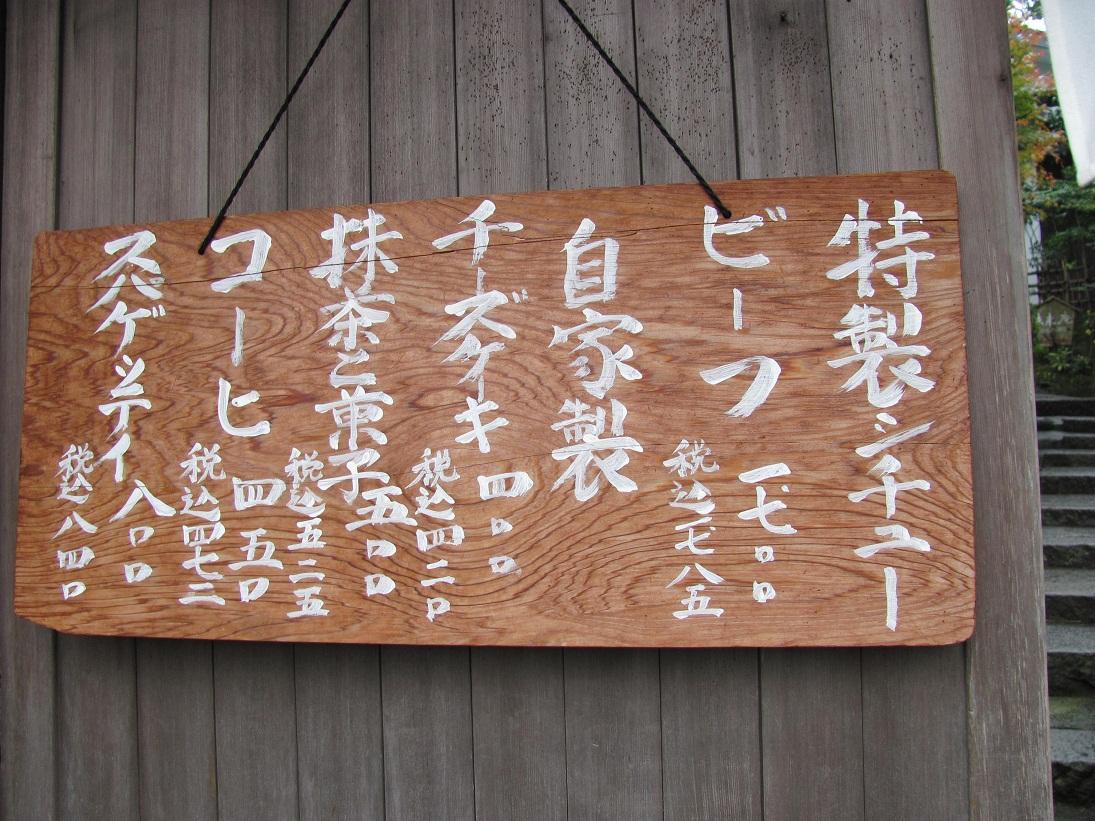 特製シチュー
ビーフ
一七〇〇
税込一七八五
自家製
チーズケーキ
四〇〇
税込四二〇
抹茶と菓子
五〇〇
税込五二五
コーヒ
四五〇
税込四七三
スパゲッティ
八〇〇
税込八四〇